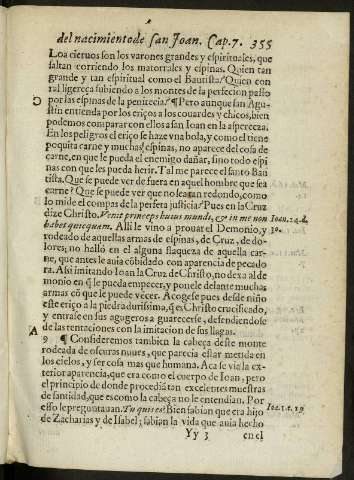 del nacimiento de san Ioan. Cap. 7. 355
Loa cieruos son los varones grandes y espirituales, que
saltan corriendo los matorrales y espinas. Quien tan
grande y tan espiritual como el Bautista? Quien con
tal ligereça subiendo a los montes de la perfecion passo
C por las espinas de la penitẽcia? ¶ Pero aunque san Agu-
stin entienda por los eriços a los couardes y chicos, bien
podemos comparar con ellos a san Ioan en la aspereza.
En los peligros el eriço se haze vna bola, y como el tiene
poquita carne y muchas espinas, no aparece del cosa de
carne, en que le pueda el enemigo dañar, sino todo espi
nas con que les pueda herir. Tal me parece el santo Bau
tista. Que se puede ver de fuera en aquel hombre que sea
carne? Que se puede ver que no sea tan redondo, como
lo mide el compas de la perfeta justicia? Pues en la Cruz
dize Christo. Venit princeps huius mundi, & in me non Ioan. 14. d.
habet quicquam. Alli le vino a prouar el Demonio, y 30.
rodeado de aquellas armas de espinas, de Cruz, de do-
lores; no hallò en el alguna flaqueza de aquella car-
ne, que antes le auia cõbidado con aparencia de pecado
ra. Asi imitando Ioan la Cruz de Christo, no dexa al de
monio en q̃ le pueda empecer, y ponele delante muchas
armas cõ que le puede vẽcer. Acogese pues desde niño
este eriço a la piedra durissima, q̃ es Christo crucificado,
y entrase en sus agugeros a guarecerse, defendiendose
A de las tentaciones con la imitacion de sus llagas.
9 ¶ Consideremos tambien la cabeça deste monte
rodeada de oscuras nuues, que parecia estar metida en
los cielos, y ser cosa mas que humana. Aca se via la ex-
terior aparencia, que era como el cuerpo de Ioan, pero
el principio de donde procedian tan excelentes muestras
de santidad, que es como la cabeça no le entendian. Por
esso le preguntauan. Tu quis es? Bien sabian que era hijo Ioã. 1. c. 19
de Zacharias y de Isabel; sabian la vida que auia hecho
Yy 3 en el